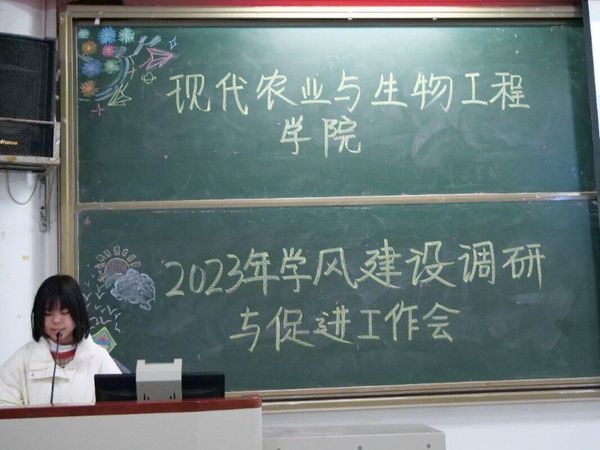 现代农业与生物工程
学院
2023年学风建设调研
与促进工作会